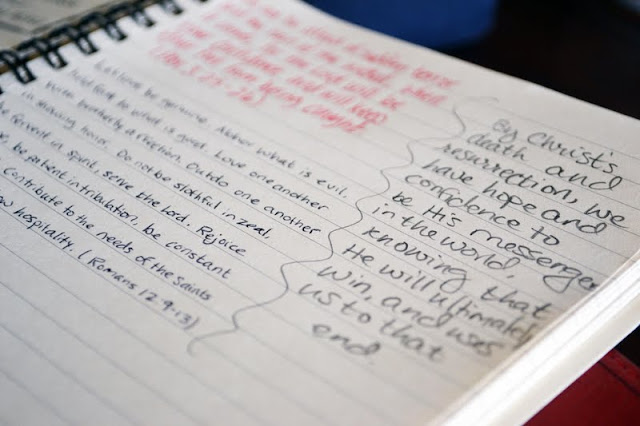 be afraid of sudden terror
for the LORD will be
confidence, and will keep
foot from being caught
Let love be genuine. Abhor what is evil,
hold fast to what is good. Love one another
with brotherly affection. Outdo one another
in showing honor. Do not be slothful in zeal,
fervent in spirit, serve the Lord. Rejoice
be patient in tribulation, be constant
Contribute to the needs of the saints
hospitality. (Romans 12:9-13)
By Christ's
death and
resurrection, we
have hope and
confidence to
be His messenger
in the world,
knowing that
He will ultimately
win, and uses
us to that
end.